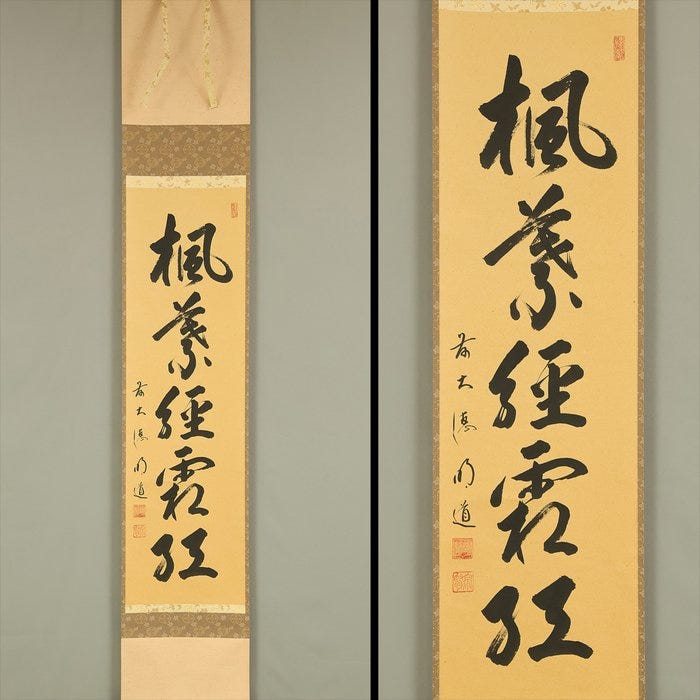 楓葉經霜紅
前大徳明道
楓葉經霜紅
前大徳明道